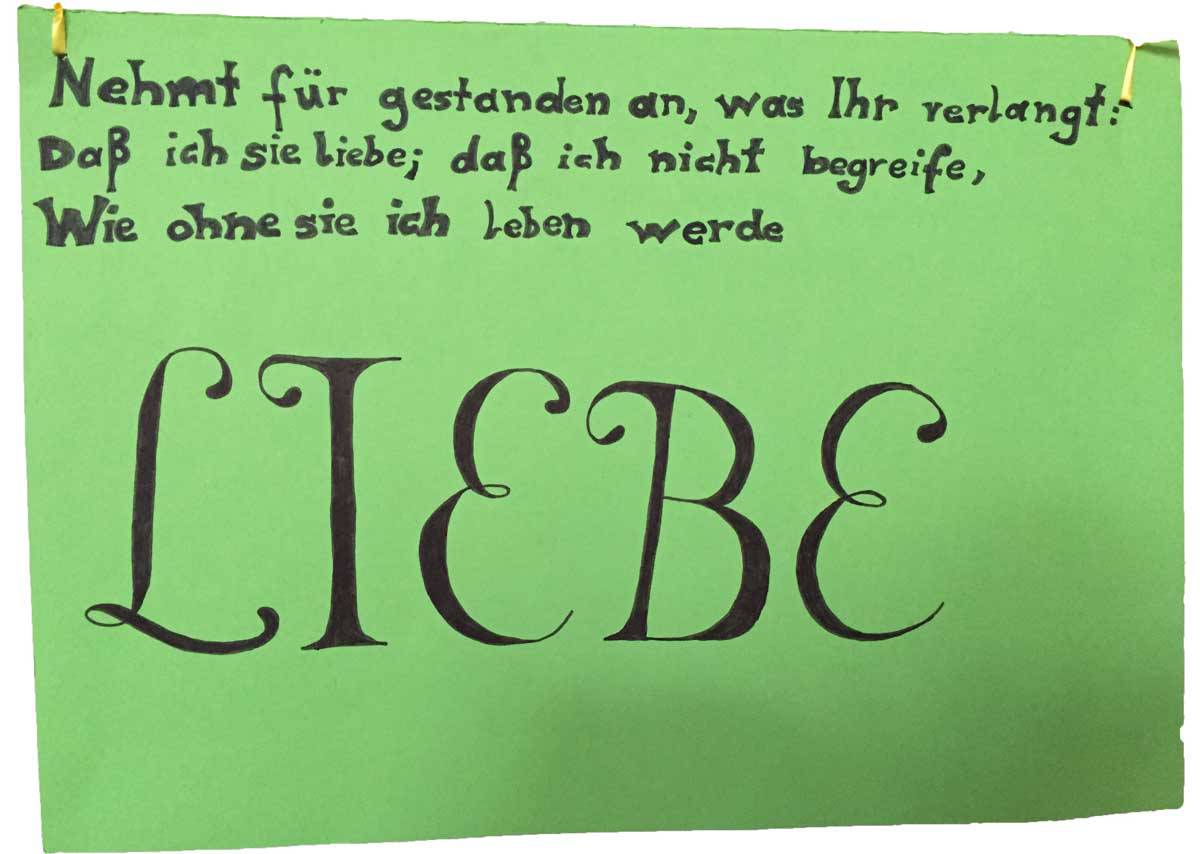 Nehmt für gestanden an, was Ihr verlangt:
Daß ich sie liebe; daß ich nicht begreife,
Wie ohne sie ich leben werde
LIEBE